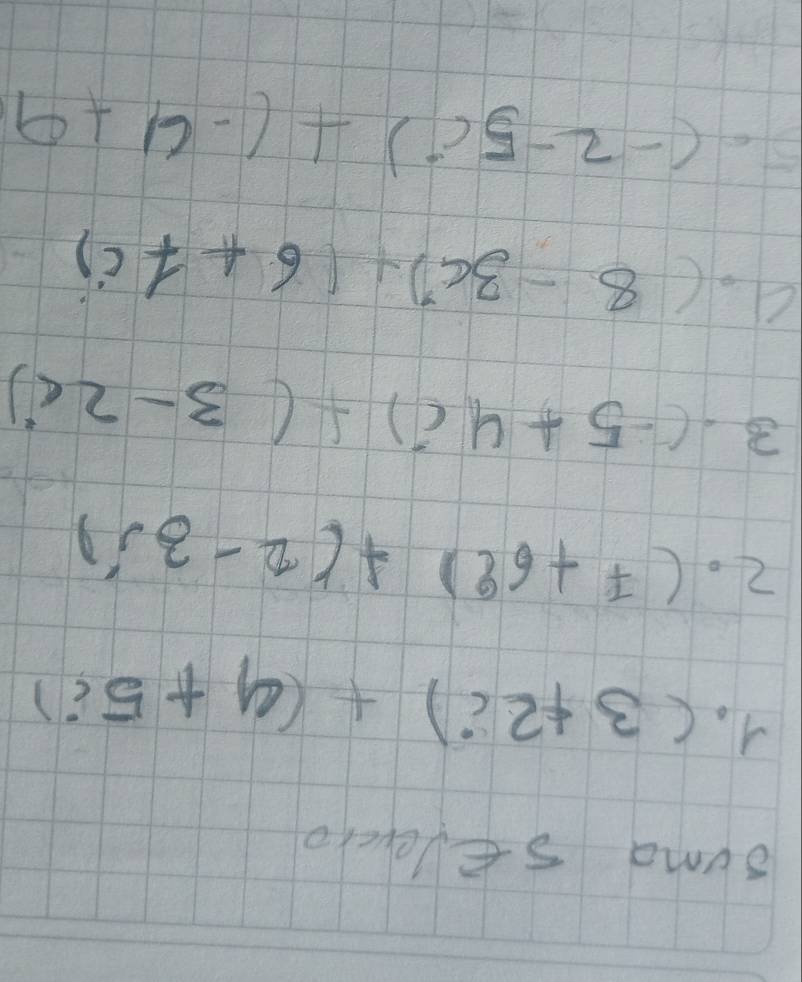 Suma 5 Ejercicio
1. (3+2i) + (4+5i)
2. (7+6i) + (2-3i)
3. (-5+4i) + (3-2i)
4. (8-3i) + (6+7i)
5. (-2-5i) + (-4+9